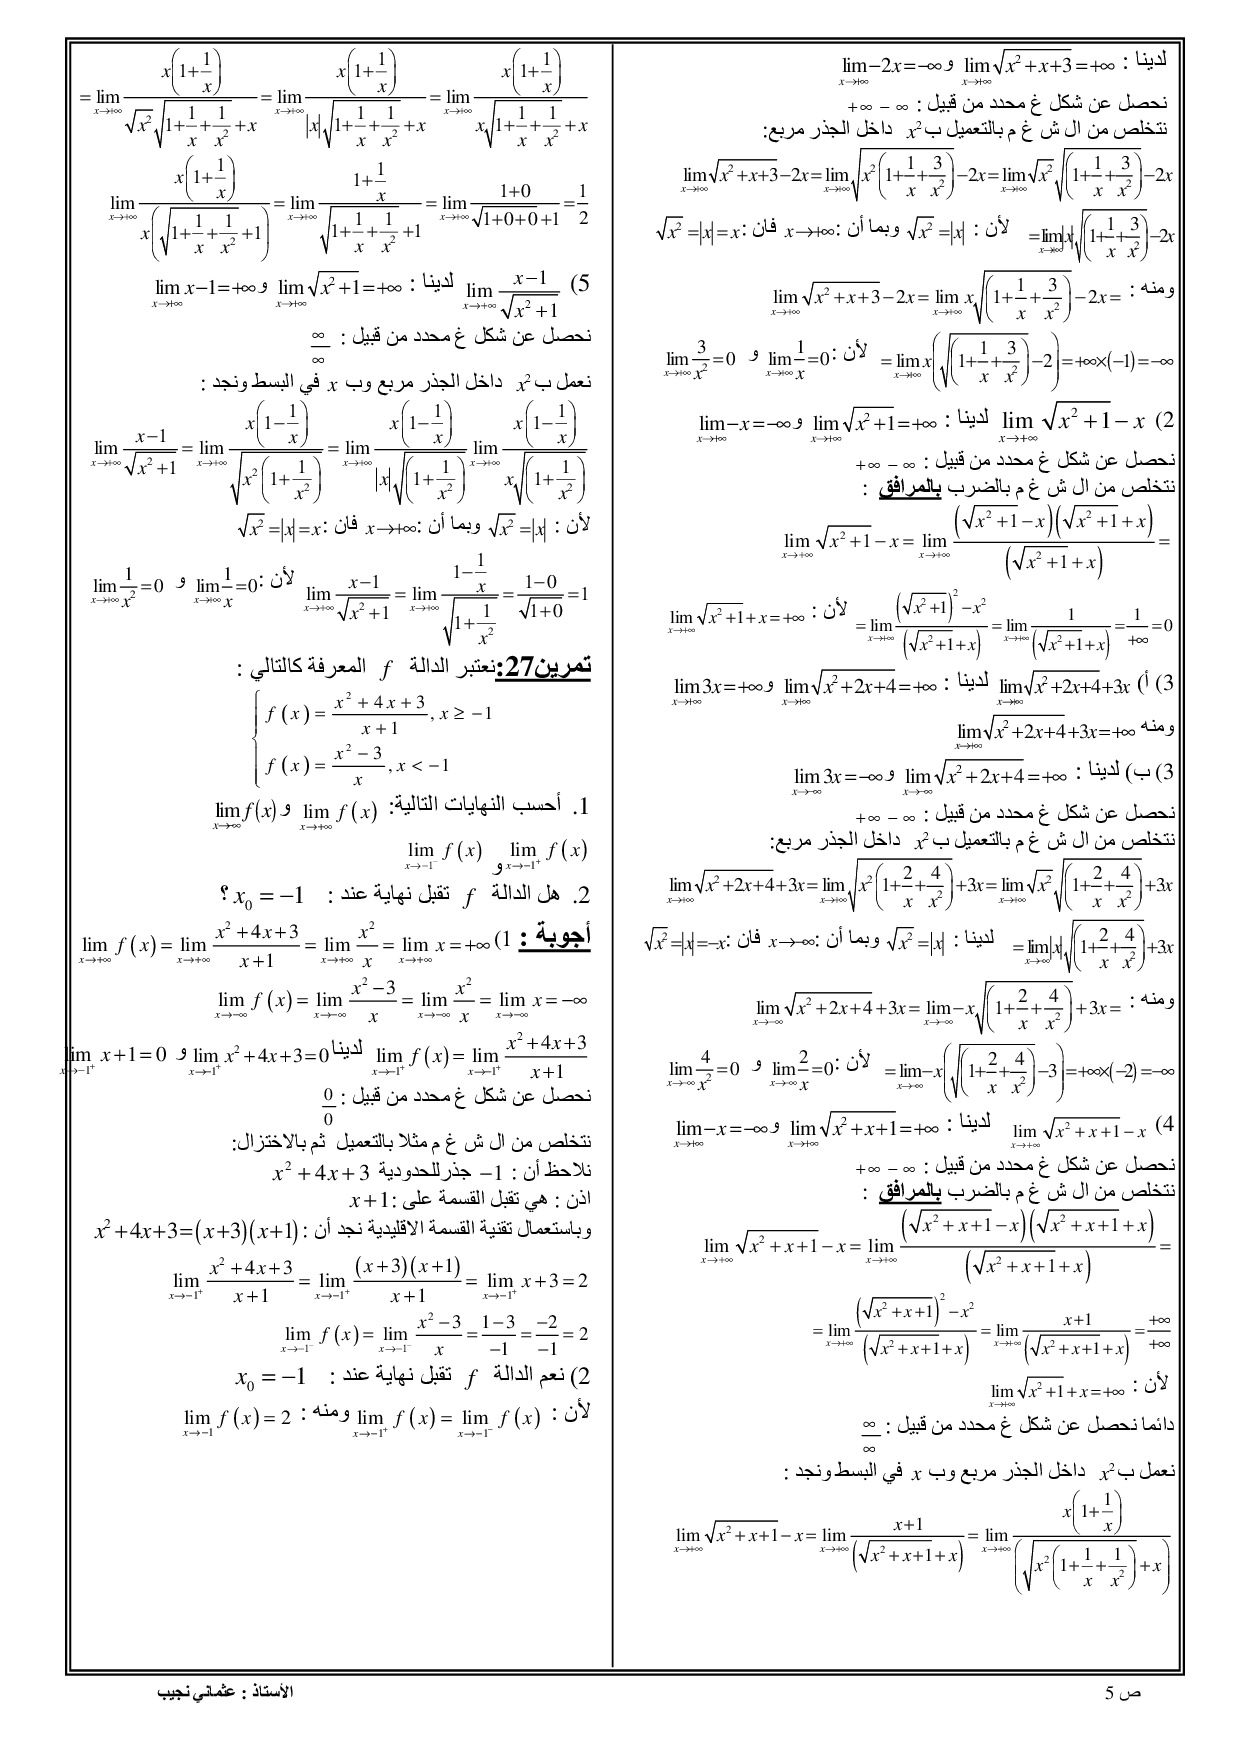 لدينا : $\lim_{x\to+\infty}\sqrt{x^2+x+3}=+\infty$ و $\lim_{x\to+\infty}-2x=-\infty$
نحصل عن شكل غ محدد من قبيل : $+\infty-\infty$
نتخلص من ال ش غ م بالتعميل ب $x^2$ داخل الجذر مربع:
$\lim_{x\to+\infty}\sqrt{x^2+x+3}-2x=\lim_{x\to+\infty}\sqrt{x^2\left(1+\frac{1}{x}+\frac{3}{x^2}\right)}-2x=\lim_{x\to+\infty}\sqrt{x^2}\sqrt{\left(1+\frac{1}{x}+\frac{3}{x^2}\right)}-2x$
$=\lim_{x\to+\infty}|x|\sqrt{\left(1+\frac{1}{x}+\frac{3}{x^2}\right)}-2x$ لأن : $\sqrt{x^2}=|x|$ وبما أن : $x\to+\infty$ فان : $\sqrt{x^2}=|x|=x$
ومنه : $\lim_{x\to+\infty}\sqrt{x^2+x+3}-2x=\lim_{x\to+\infty}x\sqrt{\left(1+\frac{1}{x}+\frac{3}{x^2}\right)}-2x=$
$=\lim_{x\to+\infty}x\left(\sqrt{\left(1+\frac{1}{x}+\frac{3}{x^2}\right)}-2\right)=+\infty\times(-1)=-\infty$ لأن : $\lim_{x\to+\infty}\frac{1}{x}=0$ و $\lim_{x\to+\infty}\frac{3}{x^2}=0$
2) $\lim_{x\to+\infty}\sqrt{x^2+1}-x$ لدينا : $\lim_{x\to+\infty}\sqrt{x^2+1}=+\infty$ و $\lim_{x\to+\infty}-x=-\infty$
نحصل عن شكل غ محدد من قبيل : $+\infty-\infty$
نتخلص من ال ش غ م بالضرب بالمرافق :
$\lim_{x\to+\infty}\sqrt{x^2+1}-x=\lim_{x\to+\infty}\frac{\left(\sqrt{x^2+1}-x\right)\left(\sqrt{x^2+1}+x\right)}{\left(\sqrt{x^2+1}+x\right)}=$
$=\lim_{x\to+\infty}\frac{\left(\sqrt{x^2+1}\right)^2-x^2}{\left(\sqrt{x^2+1}+x\right)}=\lim_{x\to+\infty}\frac{1}{\left(\sqrt{x^2+1}+x\right)}=\frac{1}{+\infty}=0$ لأن : $\lim_{x\to+\infty}\sqrt{x^2+1}+x=+\infty$
3) أ) $\lim_{x\to+\infty}\sqrt{x^2+2x+4}+3x$ لدينا : $\lim_{x\to+\infty}\sqrt{x^2+2x+4}=+\infty$ و $\lim_{x\to+\infty}3x=+\infty$
ومنه $\lim_{x\to+\infty}\sqrt{x^2+2x+4}+3x=+\infty$
3) ب) لدينا : $\lim_{x\to-\infty}\sqrt{x^2+2x+4}=+\infty$ و $\lim_{x\to-\infty}3x=-\infty$
نحصل عن شكل غ محدد من قبيل : $+\infty-\infty$
نتخلص من ال ش غ م بالتعميل ب $x^2$ داخل الجذر مربع:
$\lim_{x\to+\infty}\sqrt{x^2+2x+4}+3x=\lim_{x\to+\infty}\sqrt{x^2\left(1+\frac{2}{x}+\frac{4}{x^2}\right)}+3x=\lim_{x\to+\infty}\sqrt{x^2}\sqrt{\left(1+\frac{2}{x}+\frac{4}{x^2}\right)}+3x$
$=\lim_{x\to-\infty}|x|\sqrt{\left(1+\frac{2}{x}+\frac{4}{x^2}\right)}+3x$ لدينا : $\sqrt{x^2}=|x|$ وبما أن : $x\to-\infty$ فان : $\sqrt{x^2}=|x|=-x$
ومنه : $\lim_{x\to-\infty}\sqrt{x^2+2x+4}+3x=\lim_{x\to-\infty}-x\sqrt{\left(1+\frac{2}{x}+\frac{4}{x^2}\right)}+3x=$
$=\lim_{x\to-\infty}-x\left(\sqrt{\left(1+\frac{2}{x}+\frac{4}{x^2}\right)}-3\right)=+\infty\times(-2)=-\infty$ لأن : $\lim_{x\to-\infty}\frac{2}{x}=0$ و $\lim_{x\to-\infty}\frac{4}{x^2}=0$
4) $\lim_{x\to+\infty}\sqrt{x^2+x+1}-x$ لدينا : $\lim_{x\to+\infty}\sqrt{x^2+x+1}=+\infty$ و $\lim_{x\to+\infty}-x=-\infty$
نحصل عن شكل غ محدد من قبيل : $+\infty-\infty$
نتخلص من ال ش غ م بالضرب بالمرافق :
$\lim_{x\to+\infty}\sqrt{x^2+x+1}-x=\lim_{x\to+\infty}\frac{\left(\sqrt{x^2+x+1}-x\right)\left(\sqrt{x^2+x+1}+x\right)}{\left(\sqrt{x^2+x+1}+x\right)}=$
$=\lim_{x\to+\infty}\frac{\left(\sqrt{x^2+x+1}\right)^2-x^2}{\left(\sqrt{x^2+x+1}+x\right)}=\lim_{x\to+\infty}\frac{x+1}{\left(\sqrt{x^2+x+1}+x\right)}=\frac{+\infty}{+\infty}$
لأن : $\lim_{x\to+\infty}\sqrt{x^2+1}+x=+\infty$
دائما نحصل عن شكل غ محدد من قبيل : $\frac{\infty}{\infty}$
نعمل ب $x^2$ داخل الجذر مربع وب $x$ في البسط ونجد :
$\lim_{x\to+\infty}\sqrt{x^2+x+1}-x=\lim_{x\to+\infty}\frac{x+1}{\left(\sqrt{x^2+x+1}+x\right)}=\lim_{x\to+\infty}\frac{x\left(1+\frac{1}{x}\right)}{\left(\sqrt{x^2\left(1+\frac{1}{x}+\frac{1}{x^2}\right)}+x\right)}$
$=\lim_{x\to+\infty}\frac{x\left(1+\frac{1}{x}\right)}{\sqrt{x^2}\sqrt{1+\frac{1}{x}+\frac{1}{x^2}}+x}=\lim_{x\to+\infty}\frac{x\left(1+\frac{1}{x}\right)}{|x|\sqrt{1+\frac{1}{x}+\frac{1}{x^2}}+x}=\lim_{x\to+\infty}\frac{x\left(1+\frac{1}{x}\right)}{x\sqrt{1+\frac{1}{x}+\frac{1}{x^2}}+x}$
$\lim_{x\to+\infty}\frac{x\left(1+\frac{1}{x}\right)}{x\left(\sqrt{1+\frac{1}{x}+\frac{1}{x^2}}+1\right)}=\lim_{x\to+\infty}\frac{1+\frac{1}{x}}{\sqrt{1+\frac{1}{x}+\frac{1}{x^2}}+1}=\lim_{x\to+\infty}\frac{1+0}{\sqrt{1+0+0}+1}=\frac{1}{2}$
5) $\lim_{x\to+\infty}\frac{x-1}{\sqrt{x^2+1}}$ لدينا : $\lim_{x\to+\infty}\sqrt{x^2+1}=+\infty$ و $\lim_{x\to+\infty}x-1=+\infty$
نحصل عن شكل غ محدد من قبيل : $\frac{\infty}{\infty}$
نعمل ب $x^2$ داخل الجذر مربع وب $x$ في البسط ونجد :
$\lim_{x\to+\infty}\frac{x-1}{\sqrt{x^2+1}}=\lim_{x\to+\infty}\frac{x\left(1-\frac{1}{x}\right)}{\sqrt{x^2\left(1+\frac{1}{x^2}\right)}}=\lim_{x\to+\infty}\frac{x\left(1-\frac{1}{x}\right)}{|x|\sqrt{\left(1+\frac{1}{x^2}\right)}}\lim_{x\to+\infty}\frac{x\left(1-\frac{1}{x}\right)}{x\sqrt{\left(1+\frac{1}{x^2}\right)}}$
لأن : $\sqrt{x^2}=|x|$ وبما أن : $x\to+\infty$ فان : $\sqrt{x^2}=|x|=x$
$\lim_{x\to+\infty}\frac{x-1}{\sqrt{x^2+1}}=\lim_{x\to+\infty}\frac{1-\frac{1}{x}}{\sqrt{1+\frac{1}{x^2}}}=\frac{1-0}{\sqrt{1+0}}=1$ لأن : $\lim_{x\to+\infty}\frac{1}{x}=0$ و $\lim_{x\to+\infty}\frac{1}{x^2}=0$
تمرين27: نعتبر الدالة $f$ المعرفة كالتالي :
$\begin{cases}f(x)=\frac{x^2+4x+3}{x+1},x\geq-1\\f(x)=\frac{x^2-3}{x},x<-1\end{cases}$
1. أحسب النهايات التالية: $\lim_{x\to+\infty}f(x)$ و $\lim_{x\to-\infty}f(x)$
$\lim_{x\to-1^+}f(x)$ و $\lim_{x\to-1^-}f(x)$
2. هل الدالة $f$ تقبل نهاية عند : $x_0=-1$ ؟
أجوبة : 1) $\lim_{x\to+\infty}f(x)=\lim_{x\to+\infty}\frac{x^2+4x+3}{x+1}=\lim_{x\to+\infty}\frac{x^2}{x}=\lim_{x\to+\infty}x=+\infty$
$\lim_{x\to-\infty}f(x)=\lim_{x\to-\infty}\frac{x^2-3}{x}=\lim_{x\to-\infty}\frac{x^2}{x}=\lim_{x\to-\infty}x=-\infty$
$\lim_{x\to-1^+}f(x)=\lim_{x\to-1^+}\frac{x^2+4x+3}{x+1}$ لدينا $\lim_{x\to-1^+}x^2+4x+3=0$ و $\lim_{x\to-1^+}x+1=0$
نحصل عن شكل غ محدد من قبيل : $\frac{0}{0}$
نتخلص من ال ش غ م مثلا بالتعميل ثم بالاختزال:
نلاحظ أن : $-1$ جذرللحدودية $x^2+4x+3$
اذن : هي تقبل القسمة على : $x+1$
وباستعمال تقنية القسمة الاقليدية نجد أن : $x^2+4x+3=(x+3)(x+1)$
$\lim_{x\to-1^+}\frac{x^2+4x+3}{x+1}=\lim_{x\to-1^+}\frac{(x+3)(x+1)}{x+1}=\lim_{x\to-1^+}x+3=2$
$\lim_{x\to-1^-}f(x)=\lim_{x\to-1^-}\frac{x^2-3}{x}=\frac{1-3}{-1}=\frac{-2}{-1}=2$
2) نعم الدالة $f$ تقبل نهاية عند : $x_0=-1$
لأن : $\lim_{x\to-1^+}f(x)=\lim_{x\to-1^-}f(x)$ ومنه : $\lim_{x\to-1}f(x)=2$
ص 5
الأستاذ : عثماني نجيب